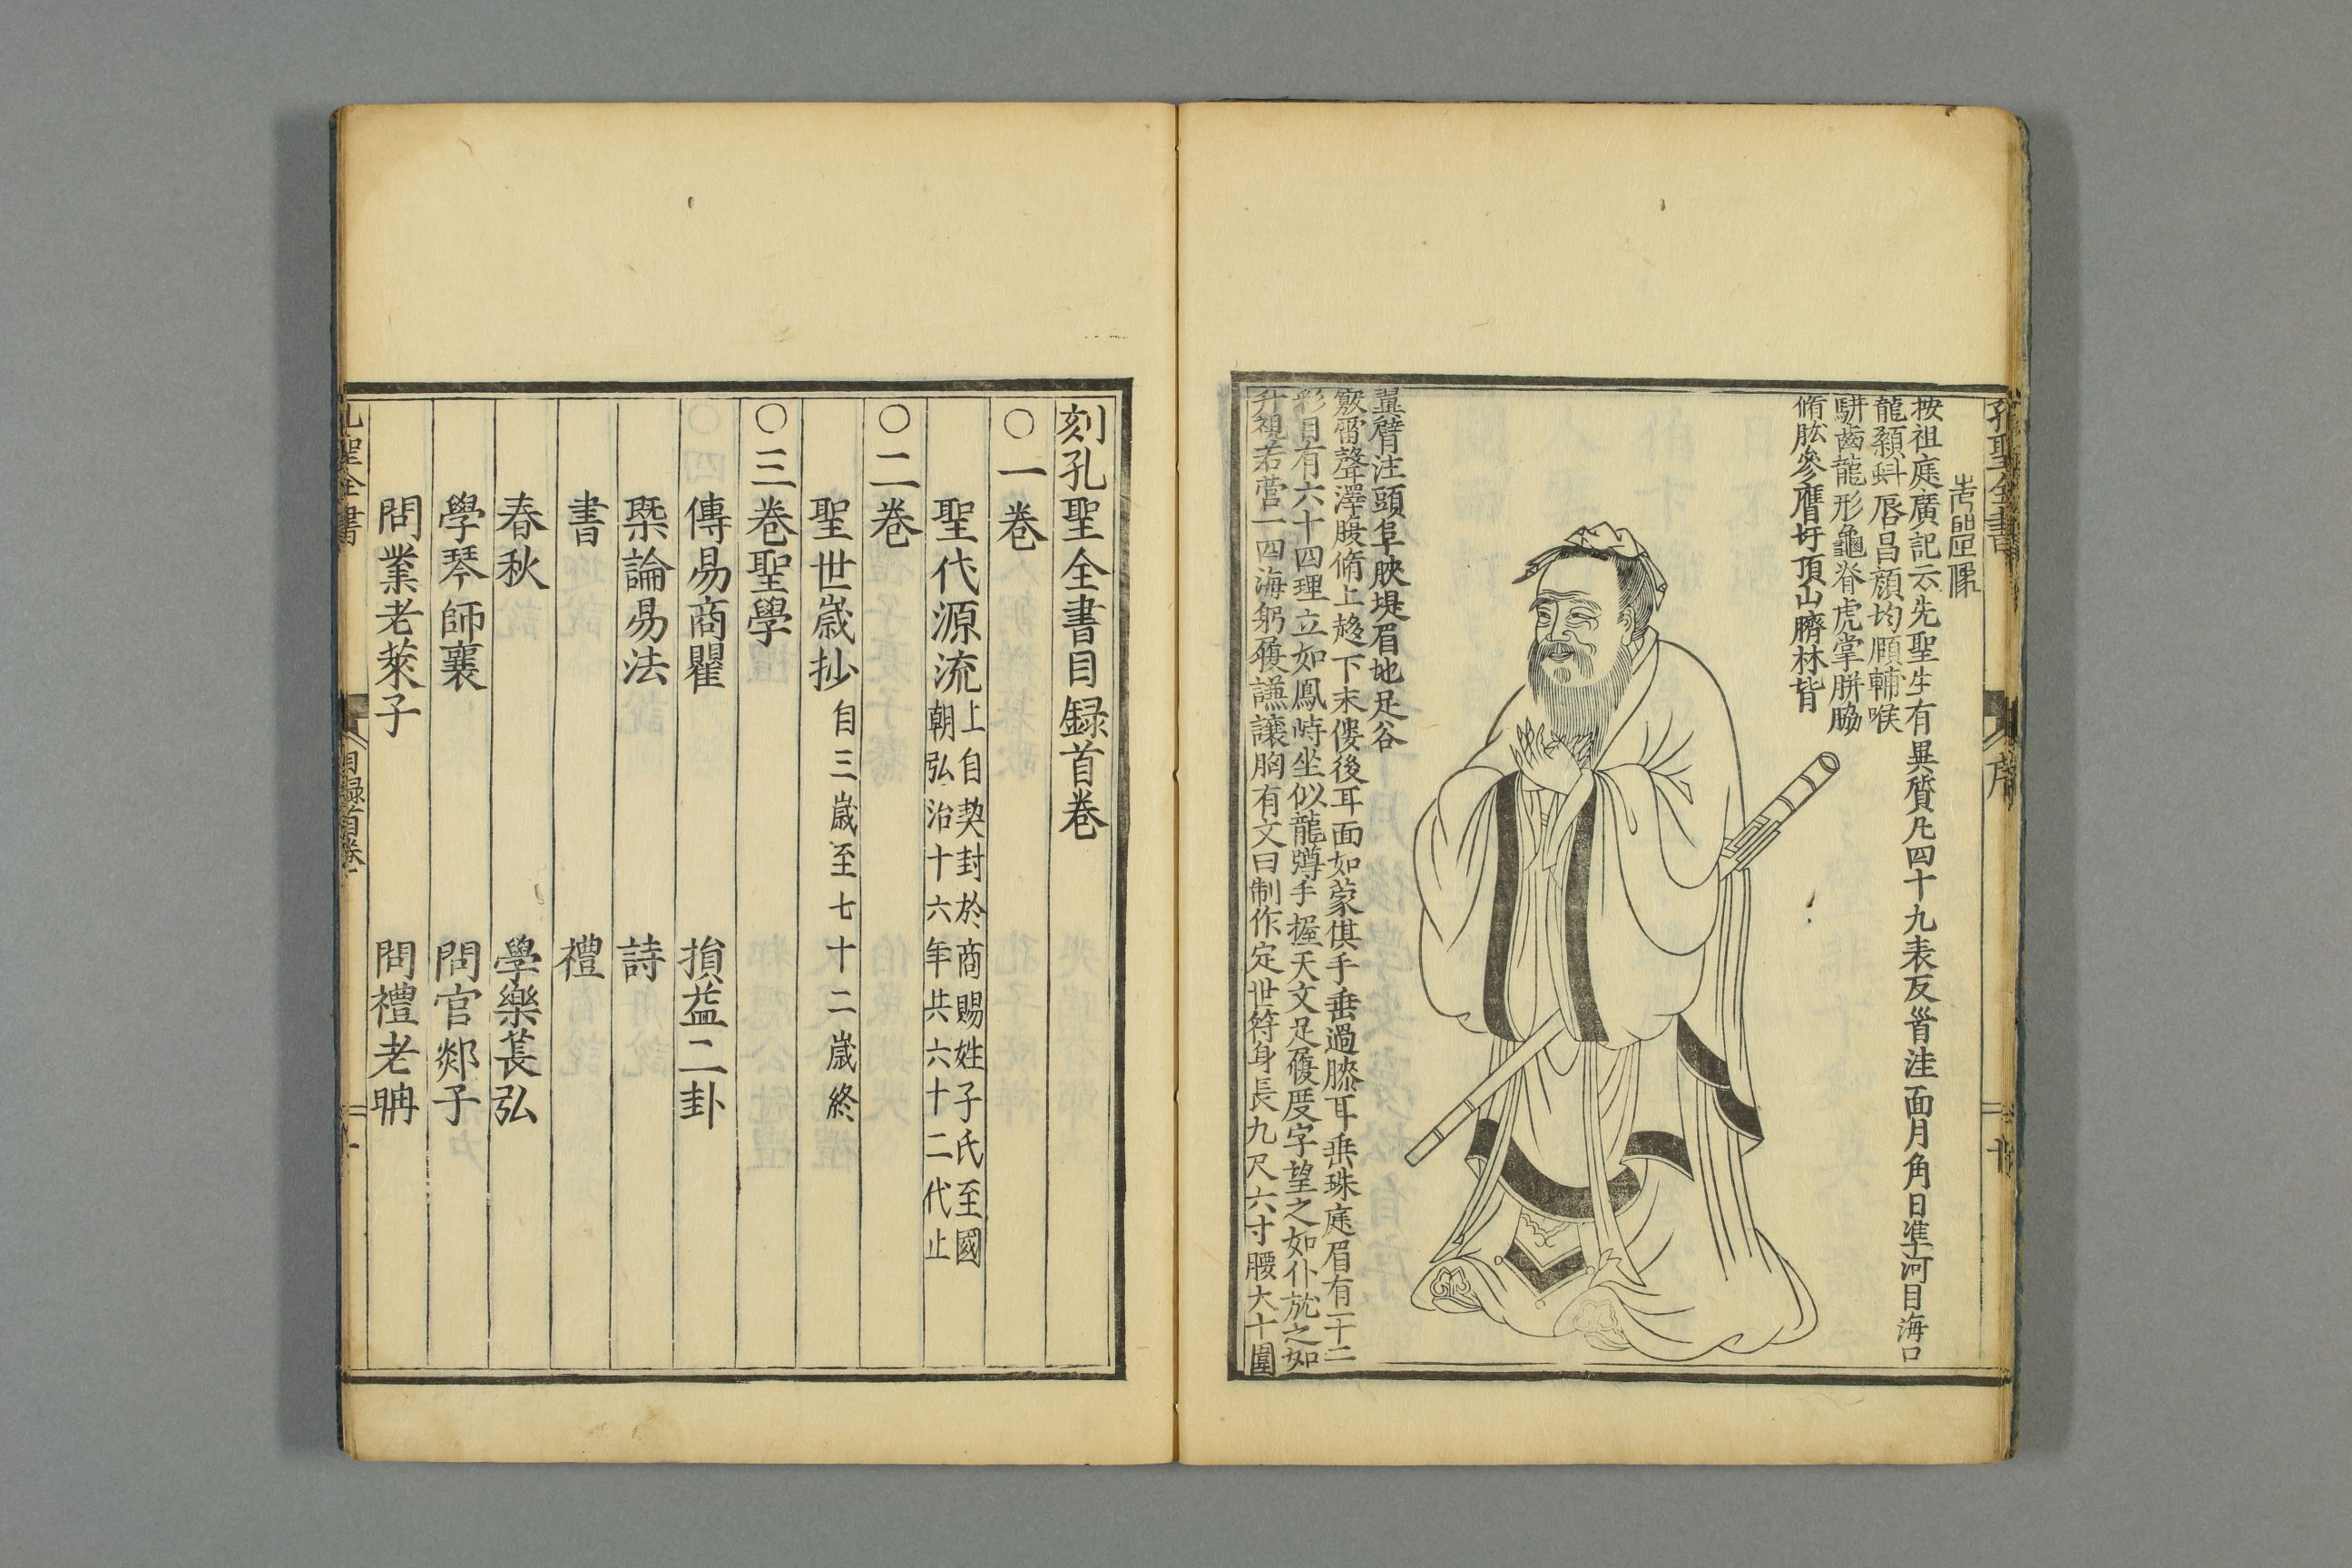 孔聖全書
序
按祖庭廣記云先聖生有異質凡四十九表反首洼面月角日準河目海口
龍顙蚪唇昌顔均頤輔喉
駢齒龍形龜脊虎掌胼脇
脩肱參膺圩頂山臍林背
翼臂注頭阜𦙶堤眉地足谷
竅雷聲澤腹脩上趍下末僂後耳面如蒙倛手垂過膝耳垂珠庭眉有一十二
彩目有六十四理立如鳳峙坐似龍蹲手握天文足履度字望之如仆就之如
升視若營一四海躬履謙讓胸有文曰制作定世符身長九尺六寸腰大十圍
刻孔聖全書目録首卷
○一卷
聖代源流上自契封於商賜姓子氏至國
朝弘治十六年共六十二代止
○二卷
聖世歲抄自三歲至七十二歲終
○三卷聖學
傳易商瞿 損益二卦
槩論易法 詩
書 禮
春秋 學樂萇弘
學琴師襄 問官郯子
問業老萊子 問禮老聃
孔聖全書
目録首卷
一